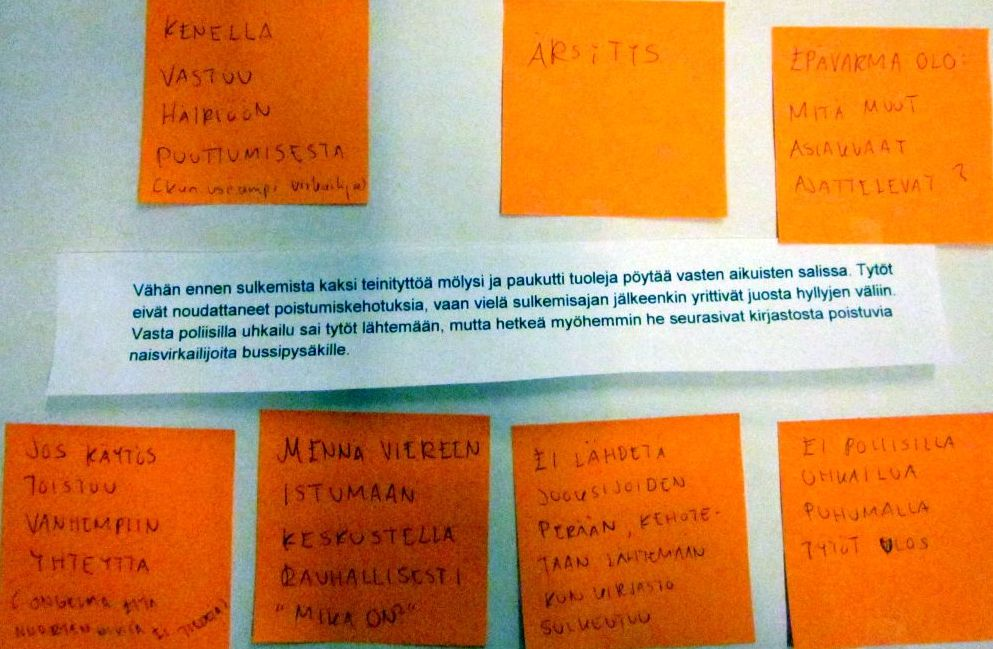 KENELLÄ
VASTUU
HÄIRIÖÖN
PUUTTUMISESTA
(kun useampi virkailija)
ÄRSYTYS
EPÄVARMA OLO:
MITÄ MUUT
ASIAKKAAT
AJATTELEVAT?
Vähän ennen sulkemista kaksi teinityttöä mölysi ja paukutti tuoleja pöytää vasten aikuisten salissa. Tytöt
eivät noudattaneet poistumiskehotuksia, vaan vielä sulkemisajan jälkeenkin yrittivät juosta hyllyjen väliin.
Vasta poliisilla uhkailu sai tytöt lähtemään, mutta hetkeä myöhemmin he seurasivat kirjastosta poistuvia
naisvirkailijoita bussipysäkille.
JOS KÄYTÖS
TOISTUU
VANHEMPIIN
YHTEYTTÄ
(ONGELMA ETTÄ
NUORTEN NIMIÄ EI TIEDETÄ)
MENNÄ VIEREEN
ISTUMAAN
KESKUSTELLA
RAUHALLISESTI
"MIKÄ ON?"
EI LÄHDETÄ
JUOKSIJOIDEN
PERÄÄN, KEHOTE-
TAAN LÄHTEMÄÄN
KUN KIRJASTO
SULKEUTUU
EI POLIISILLA
UHKAILUA
PUHUMALLA
TYTÖT ULOS